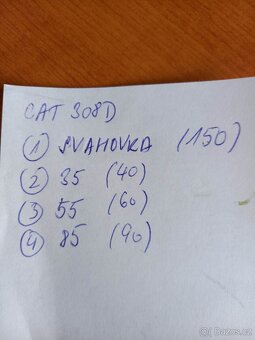 CAT 308D
① SVAHOVKA (150)
② 35 (40)
③ 55 (60)
④ 85 (90)
Bazos.cz